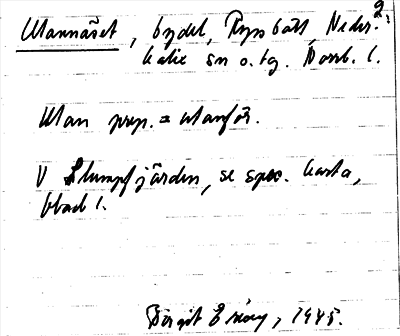 Utannäset, bydel, Rysbält, Neder-
kalix sn o. tg. Norrb. l.
Utan prep. = utanför.
V Slumpfjärden, se spec. karta,
blad 1.
Birgit Falck, 1945.